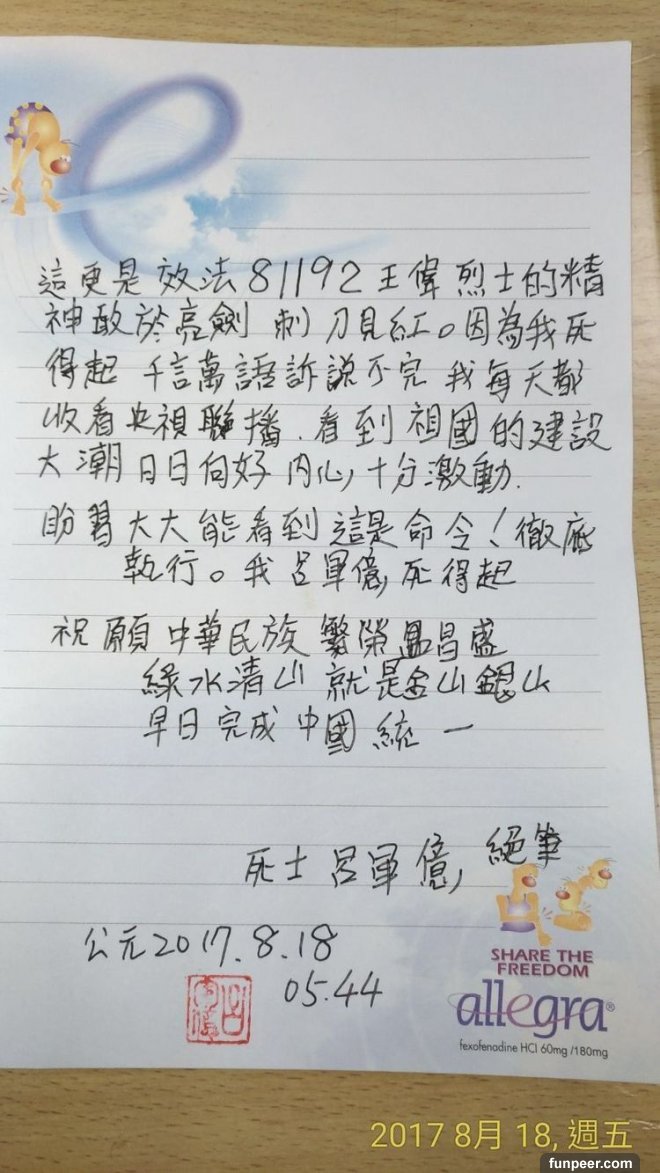 這更是效法81192王偉烈士的精
神敢於亮劍 刺刀見紅。因為我死
得起 千言萬語訴說不完 我每天都
收看央視聯播.看到祖國的建設
大潮日日向好 內心十分激動.
盼習大大能看到這是命令!徹底
執行。我呂軍億,死得起
祝願中華民族繁榮昌盛
綠水清山 就是金山銀山
早日完成中國統一
死士呂軍億,絕筆
公元2017.8.18
05.44
SHARE THE
FREEDOM
allegra®
fexofenadine HCl 60mg /180mg
2017 8月 18, 週五
funpeer.com